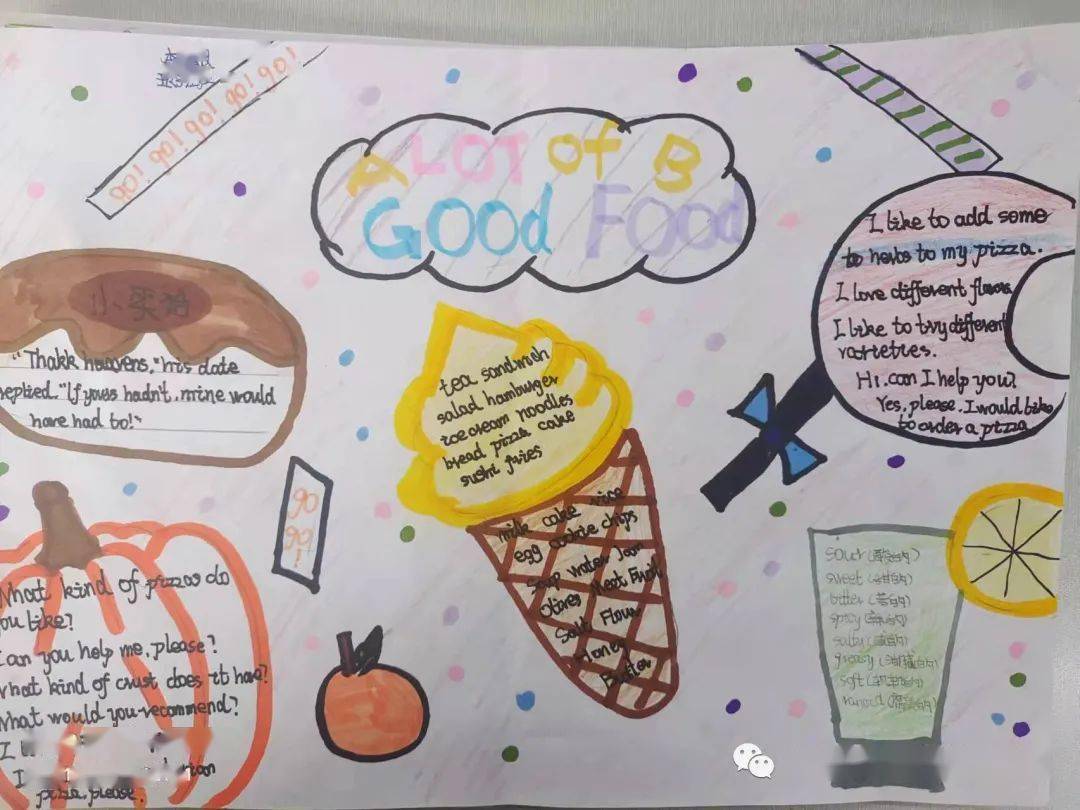 go! go! go! go! go!
A LOT of B
GOOd FOOd
I like to add some
to herbs to my pizza.
I love different flavors
I like to try different
varieties.
Hi. can I help you?
Yes, please. I would like
to order a pizza
小 实验
"Thakk heavens," his date
replied. "If youss hadn't. mine would
have had to!"
tea sandwish
salad hamburger
ice cream noodles
bread pizza cake
sushi fries
milk cake rice
egg cookie chips
soup water Jam
Olives Meat
Salt Flour
Honey
go
go!
What kind of pizzas do
you like?
Can you help me, please?
What kind of crust does it have?
What would you recommend?
I
I
pizza, please.
sour (酸的)
sweet (甜的)
bitter (苦的)
spicy (辣的)
salty (咸的)
greasy (油腻的)
soft